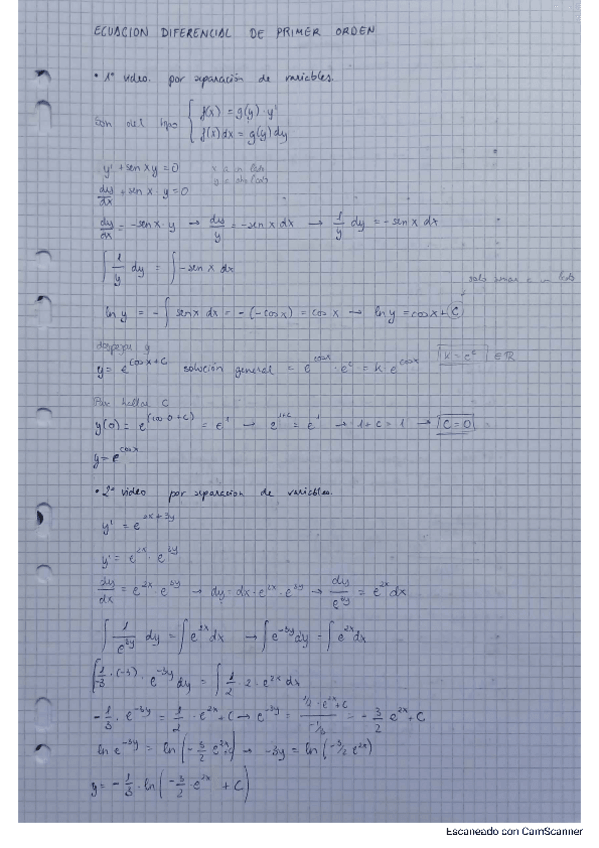 ECUACION DIFERENCIAL DE PRIMER ORDEN
• 1º video. por separación de variables.
Son del tipo { f(x) = g(y) · y'
f(x)dx = g(y)dy
y' + sen x y = 0
dy/dx + sen x · y = 0
dy/dx = -sen x · y → dy/y = -sen x dx → 1/y dy = -sen x dx
∫ 1/y dy = ∫ -sen x dx
ln y = -∫ sen x dx = -(-cos x) = cos x → ln y = cos x + C
despejar y
y = e^(cos x + C) solución general = e^(cos x) · e^c = k · e^(cos x) k = e^c ∈ ℝ
Por hallar C
y(0) = e^(cos 0 + C) = e^1 → e^(1+c) = e^1 → 1 + C = 1 → C = 0
y = e^(cos x)
• 2º video por separación de variables.
y' = e^(2x+3y)
y' = e^(2x) · e^(3y)
dy/dx = e^(2x) · e^(3y) → dy = dx · e^(2x) · e^(3y) → dy/e^(3y) = e^(2x) dx
∫ 1/e^(3y) dy = ∫ e^(2x) dx → ∫ e^(-3y) dy = ∫ e^(2x) dx
∫ 1/-3 · (-3) · e^(-3y) dy = ∫ 1/2 · 2 · e^(2x) dx
-1/3 · e^(-3y) = 1/2 · e^(2x) + C → e^(-3y) = (1/2 · e^(2x) + C)/(-1/3) = -3/2 e^(2x) + C
ln e^(-3y) = ln(-3/2 e^(2x)) → -3y = ln(-3/2 e^(2x))
y = -1/3 · ln(-3/2 · e^(2x) + C)
Escaneado con CamScanner